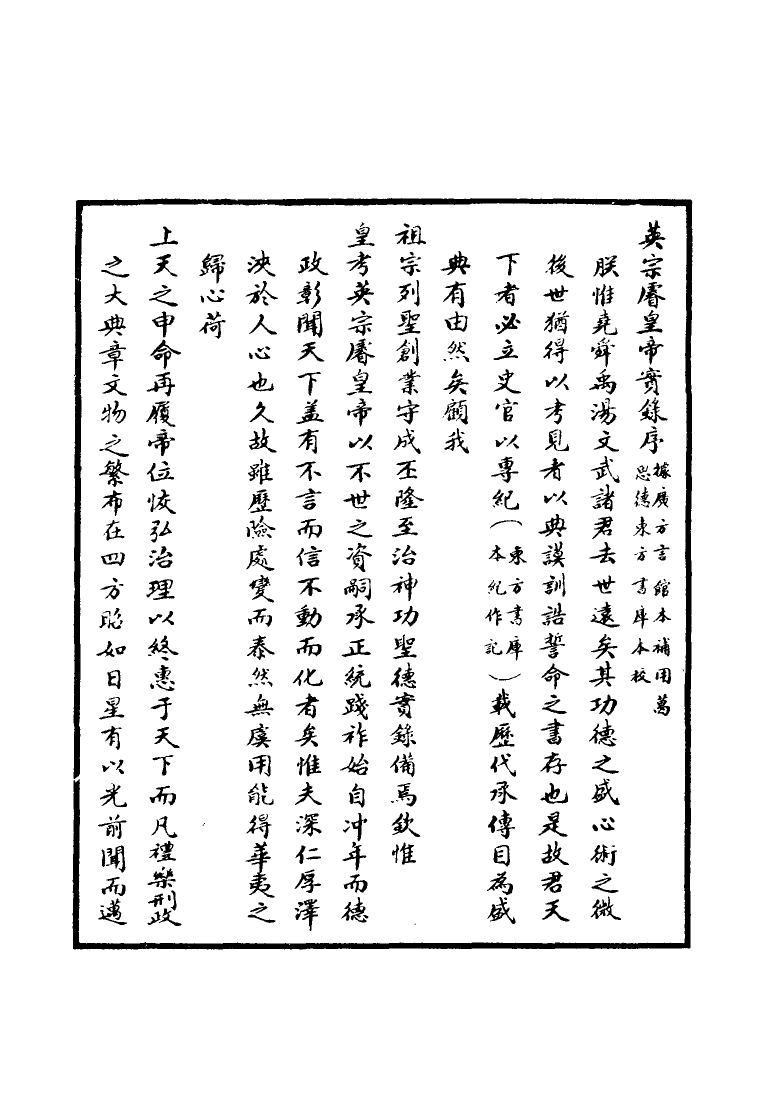 英宗睿皇帝實錄序據廣方言館本補用萬思德東方書庫本校
朕惟堯舜禹湯文武諸君去世遠矣其功德之盛心術之微
後世猶得以考見者以典謨訓誥誓命之書存也是故君天
下者必立史官以專紀(東方書庫本紀作記)載歷代承傳目為盛
典有由然矣顧我
祖宗列聖創業守成丕隆至治神功聖德實錄備焉欽惟
皇考英宗睿皇帝以不世之資嗣承正統踐祚始自冲年而德
政彰聞天下盖有不言而信不動而化者矣惟夫深仁厚澤
泱於人心也久故雖歷險處變而泰然無虞用能得華夷之
歸心荷
上天之申命再履帝位恢弘治理以終惠于天下而凡禮樂刑政
之大典章文物之繁布在四方昭如日星有以光前聞而邁